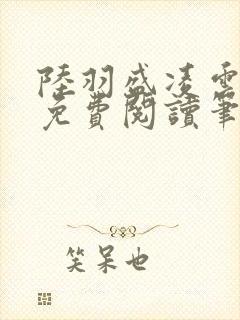 陸羽盛凌雲
免費閱讀筆
笑呆也